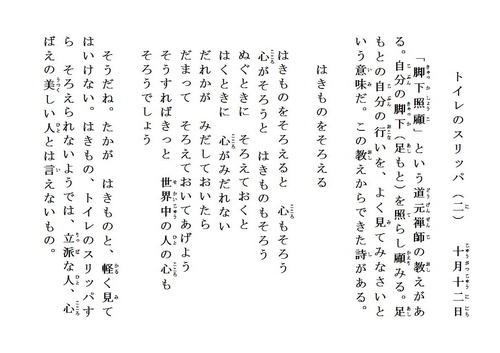 トイレのスリッパ（二）　十月十二日
「脚下照顧」という道元禅師の教えがあ
る。自分の脚下（足もと）を照らし顧みる。足
もとの自分の行いを、よく見てみなさいと
いう意味だ。この教えからできた詩がある。
はきものをそろえる
はきものをそろえると　心もそろう
心がそろうと　はきものもそろう
ぬぐときに　そろえておくと
はくときに　心がみだれない
だれかが　みだしておいたら
だまって　そろえておいてあげよう
そうすればきっと　世界中の人の心も
そろうでしょう
そうだね。たかが　はきものと、軽く見て
はいけない。はきもの、トイレのスリッパす
ら　そろえられないようでは、立派な人、心
ばえの美しい人とは言えないもの。